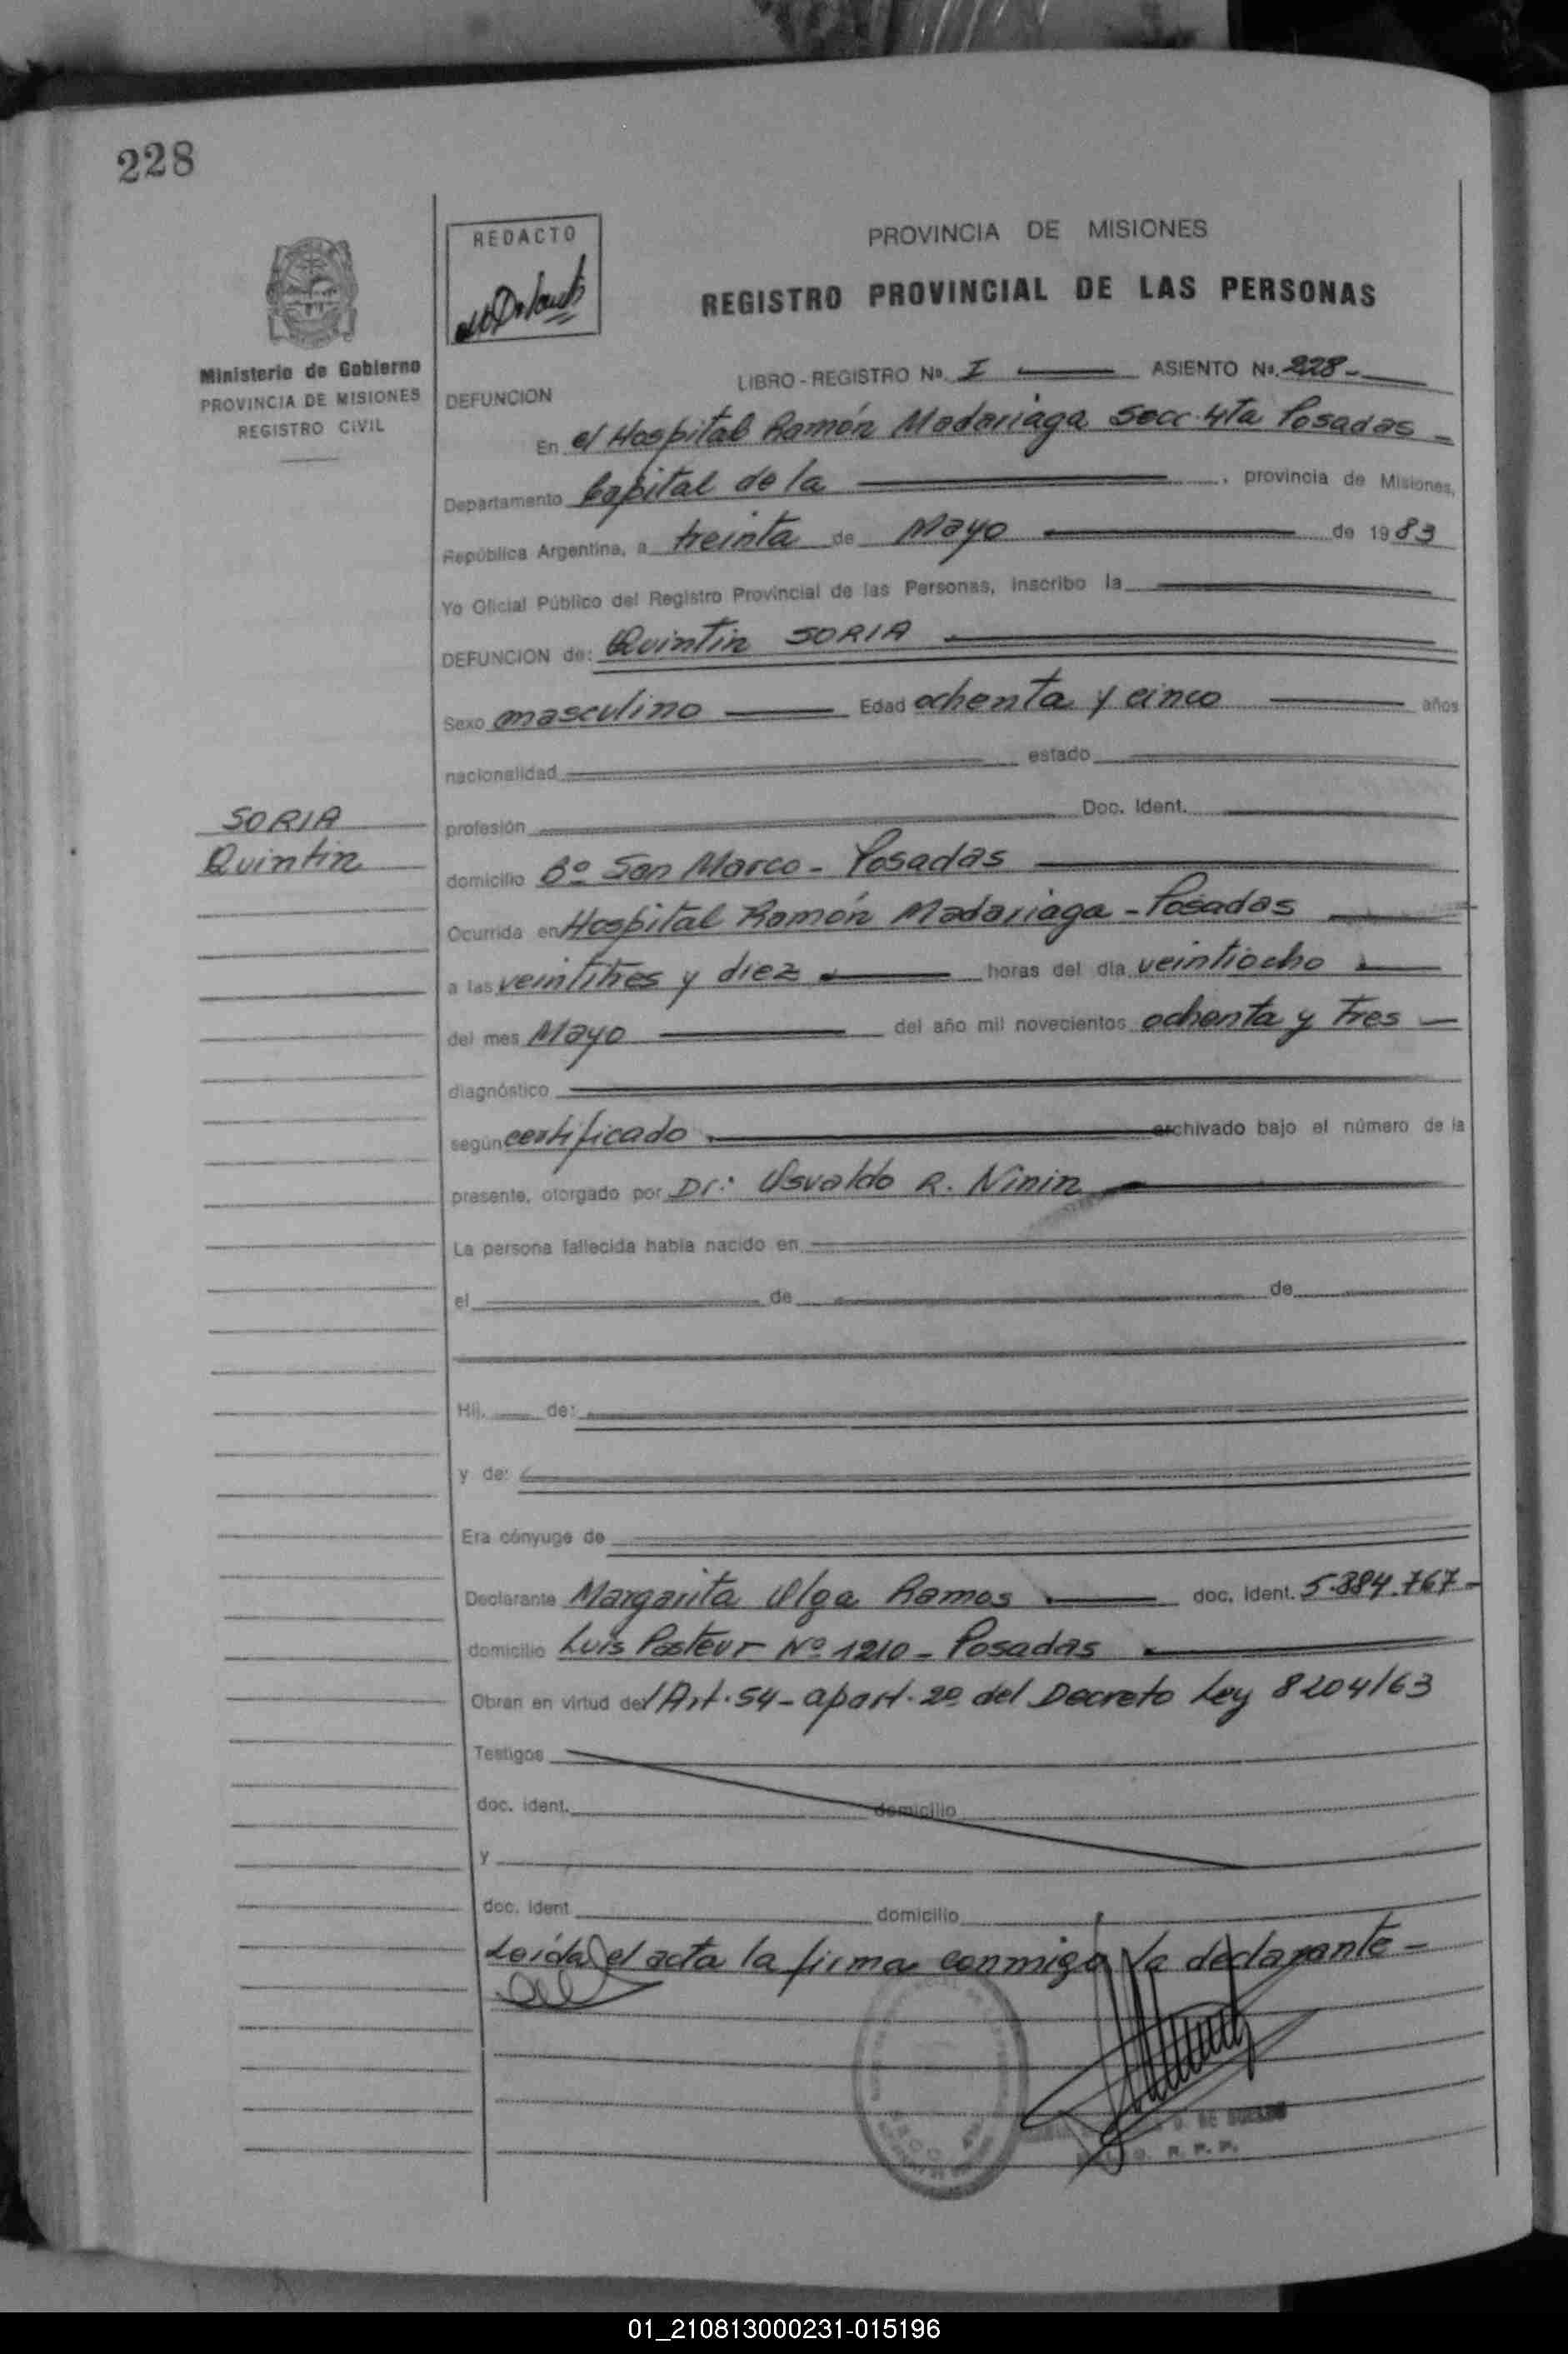 228
REDACTO
PROVINCIA DE MISIONES
REGISTRO PROVINCIAL DE LAS PERSONAS
Ministerio de Gobierno
PROVINCIA DE MISIONES
REGISTRO CIVIL
LIBRO - REGISTRO Nº. I ASIENTO Nº. 228-
DEFUNCION
En el Hospital Ramón Madariaga Secc. 4ta Posadas -
Departamento Capital de la , provincia de Misiones,
República Argentina, a treinta de Mayo de 1983
Yo Oficial Público del Registro Provincial de las Personas, inscribo la
DEFUNCION de: Quintin SORIA
Sexo masculino Edad ochenta y cinco años
nacionalidad estado
SORIA
Quintin
profesión Doc. Ident.
domicilio Bº San Marco - Posadas
Ocurrida en Hospital Ramón Madariaga - Posadas
a las veintitres y diez horas del día veintiocho
del mes Mayo del año mil novecientos ochenta y tres
diagnóstico
según certificado archivado bajo el número de la
presente, otorgado por Dr: Osvaldo R. Ninin
La persona fallecida había nacido en
el de de
Hij. de:
y de:
Era cónyuge de
Declarante Margarita Olga Ramos doc. ident. 5.884.767-
domicilio Luis Pasteur Nº 1210 - Posadas
Obran en virtud del Art. 54 - apart. 2º del Decreto Ley 8204/63
Testigos
doc. ident. domicilio
y
doc. ident domicilio
Leída el acta la firma conmigo la declarante -
R. P. P.
01_210813000231-015196